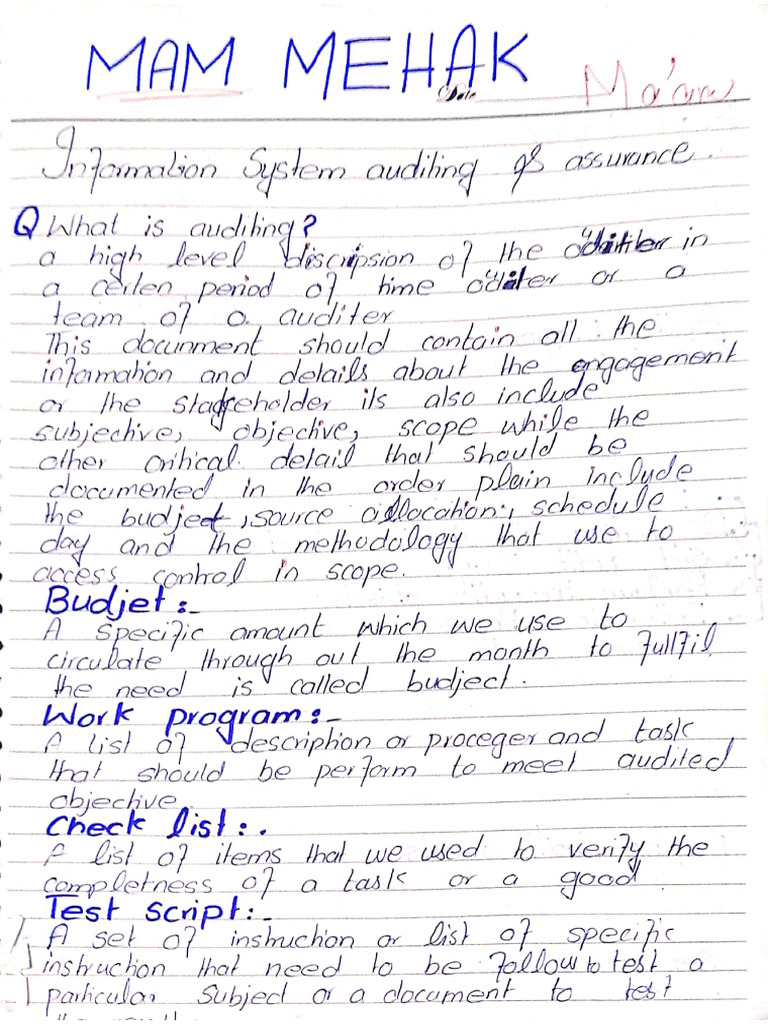 MAM MEHAK Ma'am
Date
Information System auditing & assurance.
Q What is auditing?
a high level discripsion of the in
a certen period of time or a
team of a auditer
This docunment should contain all the
information and details about the engagement
or the stackeholder its also include
subjective, objective, scope while the
other critical detail that should be
documented in the order plain include
the budject, source allocation, schedule
day and the methodology that use to
access control in scope.
Budjet:-
A specific amount which we use to
circulate through out the month to fullfil
the need is called budject.
Work program:-
A list of description or proceger and task
that should be perform to meet audited
objective
Check list:.
A list of items that we used to verify the
completness of a task or a good
Test Script:-
A set of instruction or list of specific
instruction that need to be follow to test a
particular subject or a document to test